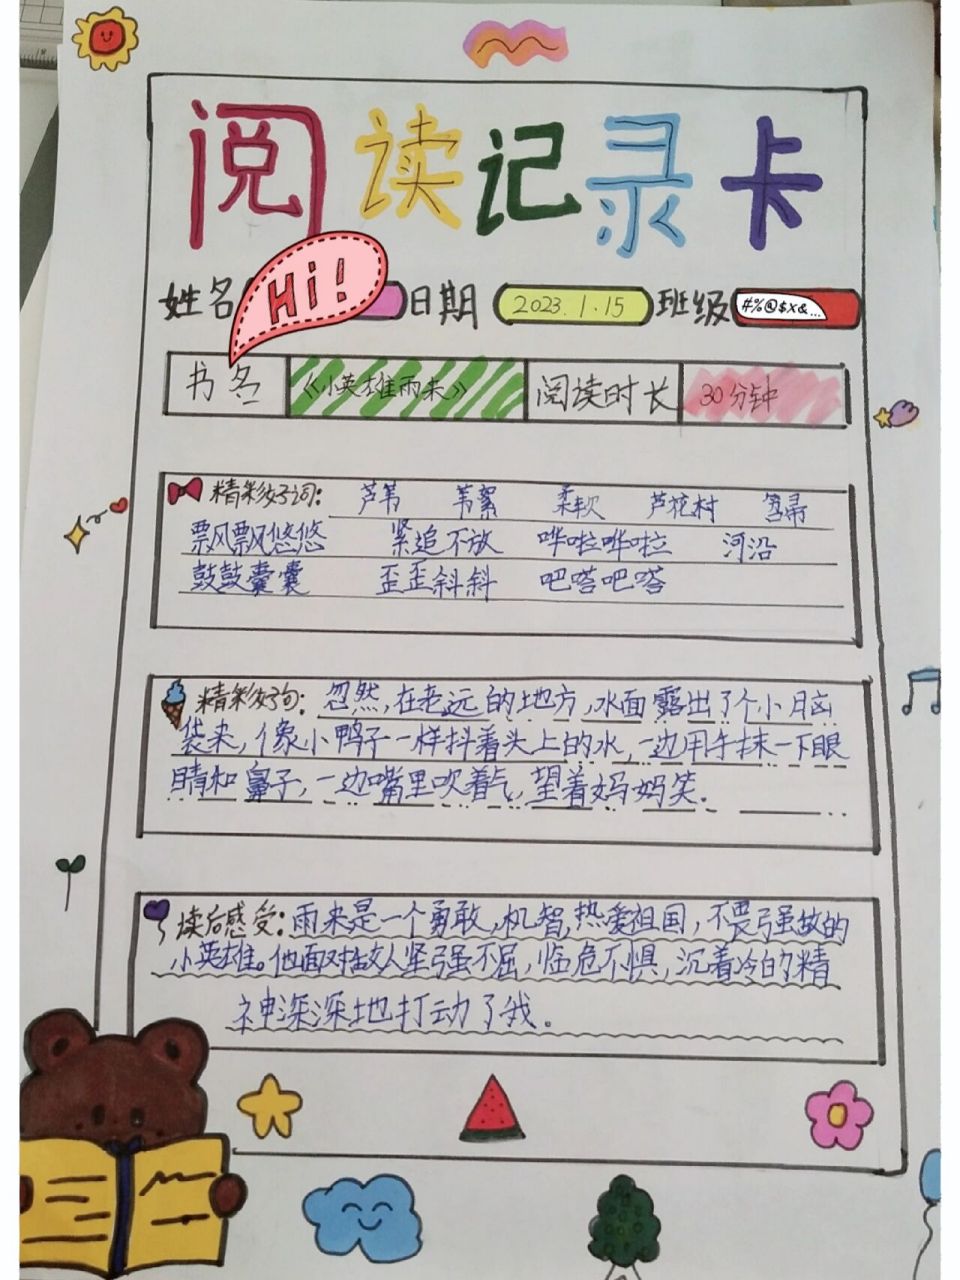 阅读记录卡
姓名 Hi! 日期 2023.1.15 班级 #%@$x&...
书名 《小英雄雨来》 阅读时长 30分钟
精彩好词: 芦苇 苇絮 柔软 芦花村 笤帚
飘飘悠悠 紧追不放 哗啦哗啦 河沿
鼓鼓囊囊 歪歪斜斜 吧嗒吧嗒
精彩好句: 忽然,在老远的地方,水面露出了个小脑
袋来,像小鸭子一样抖着头上的水,一边用手抹一下眼
睛和鼻子,一边嘴里吹着气,望着妈妈笑.
读后感受: 雨来是一个勇敢,机智,热爱祖国,不畏强敌的
小英雄。他面对敌人坚强不屈,临危不惧,沉着冷的精
神深深地打动了我。